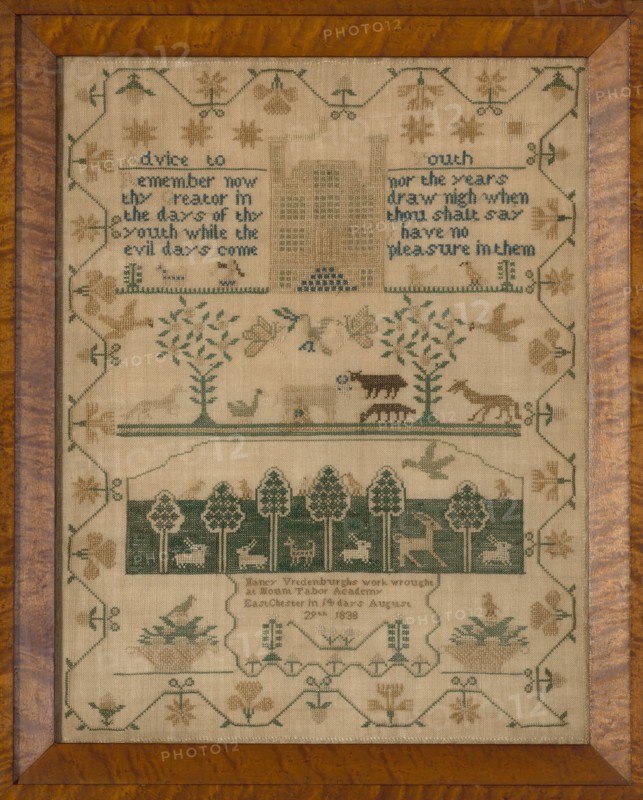 Advice to Youth
Remember now
thy Creator in
the days of thy
youth while the
evil days come
nor the years
draw nigh when
thou shalt say
I have no
pleasure in them
Nancy Vredenburghs work wrought
at Mount Tabor Academy
EastChester in 14 days August
29th 1838
PHOTO12